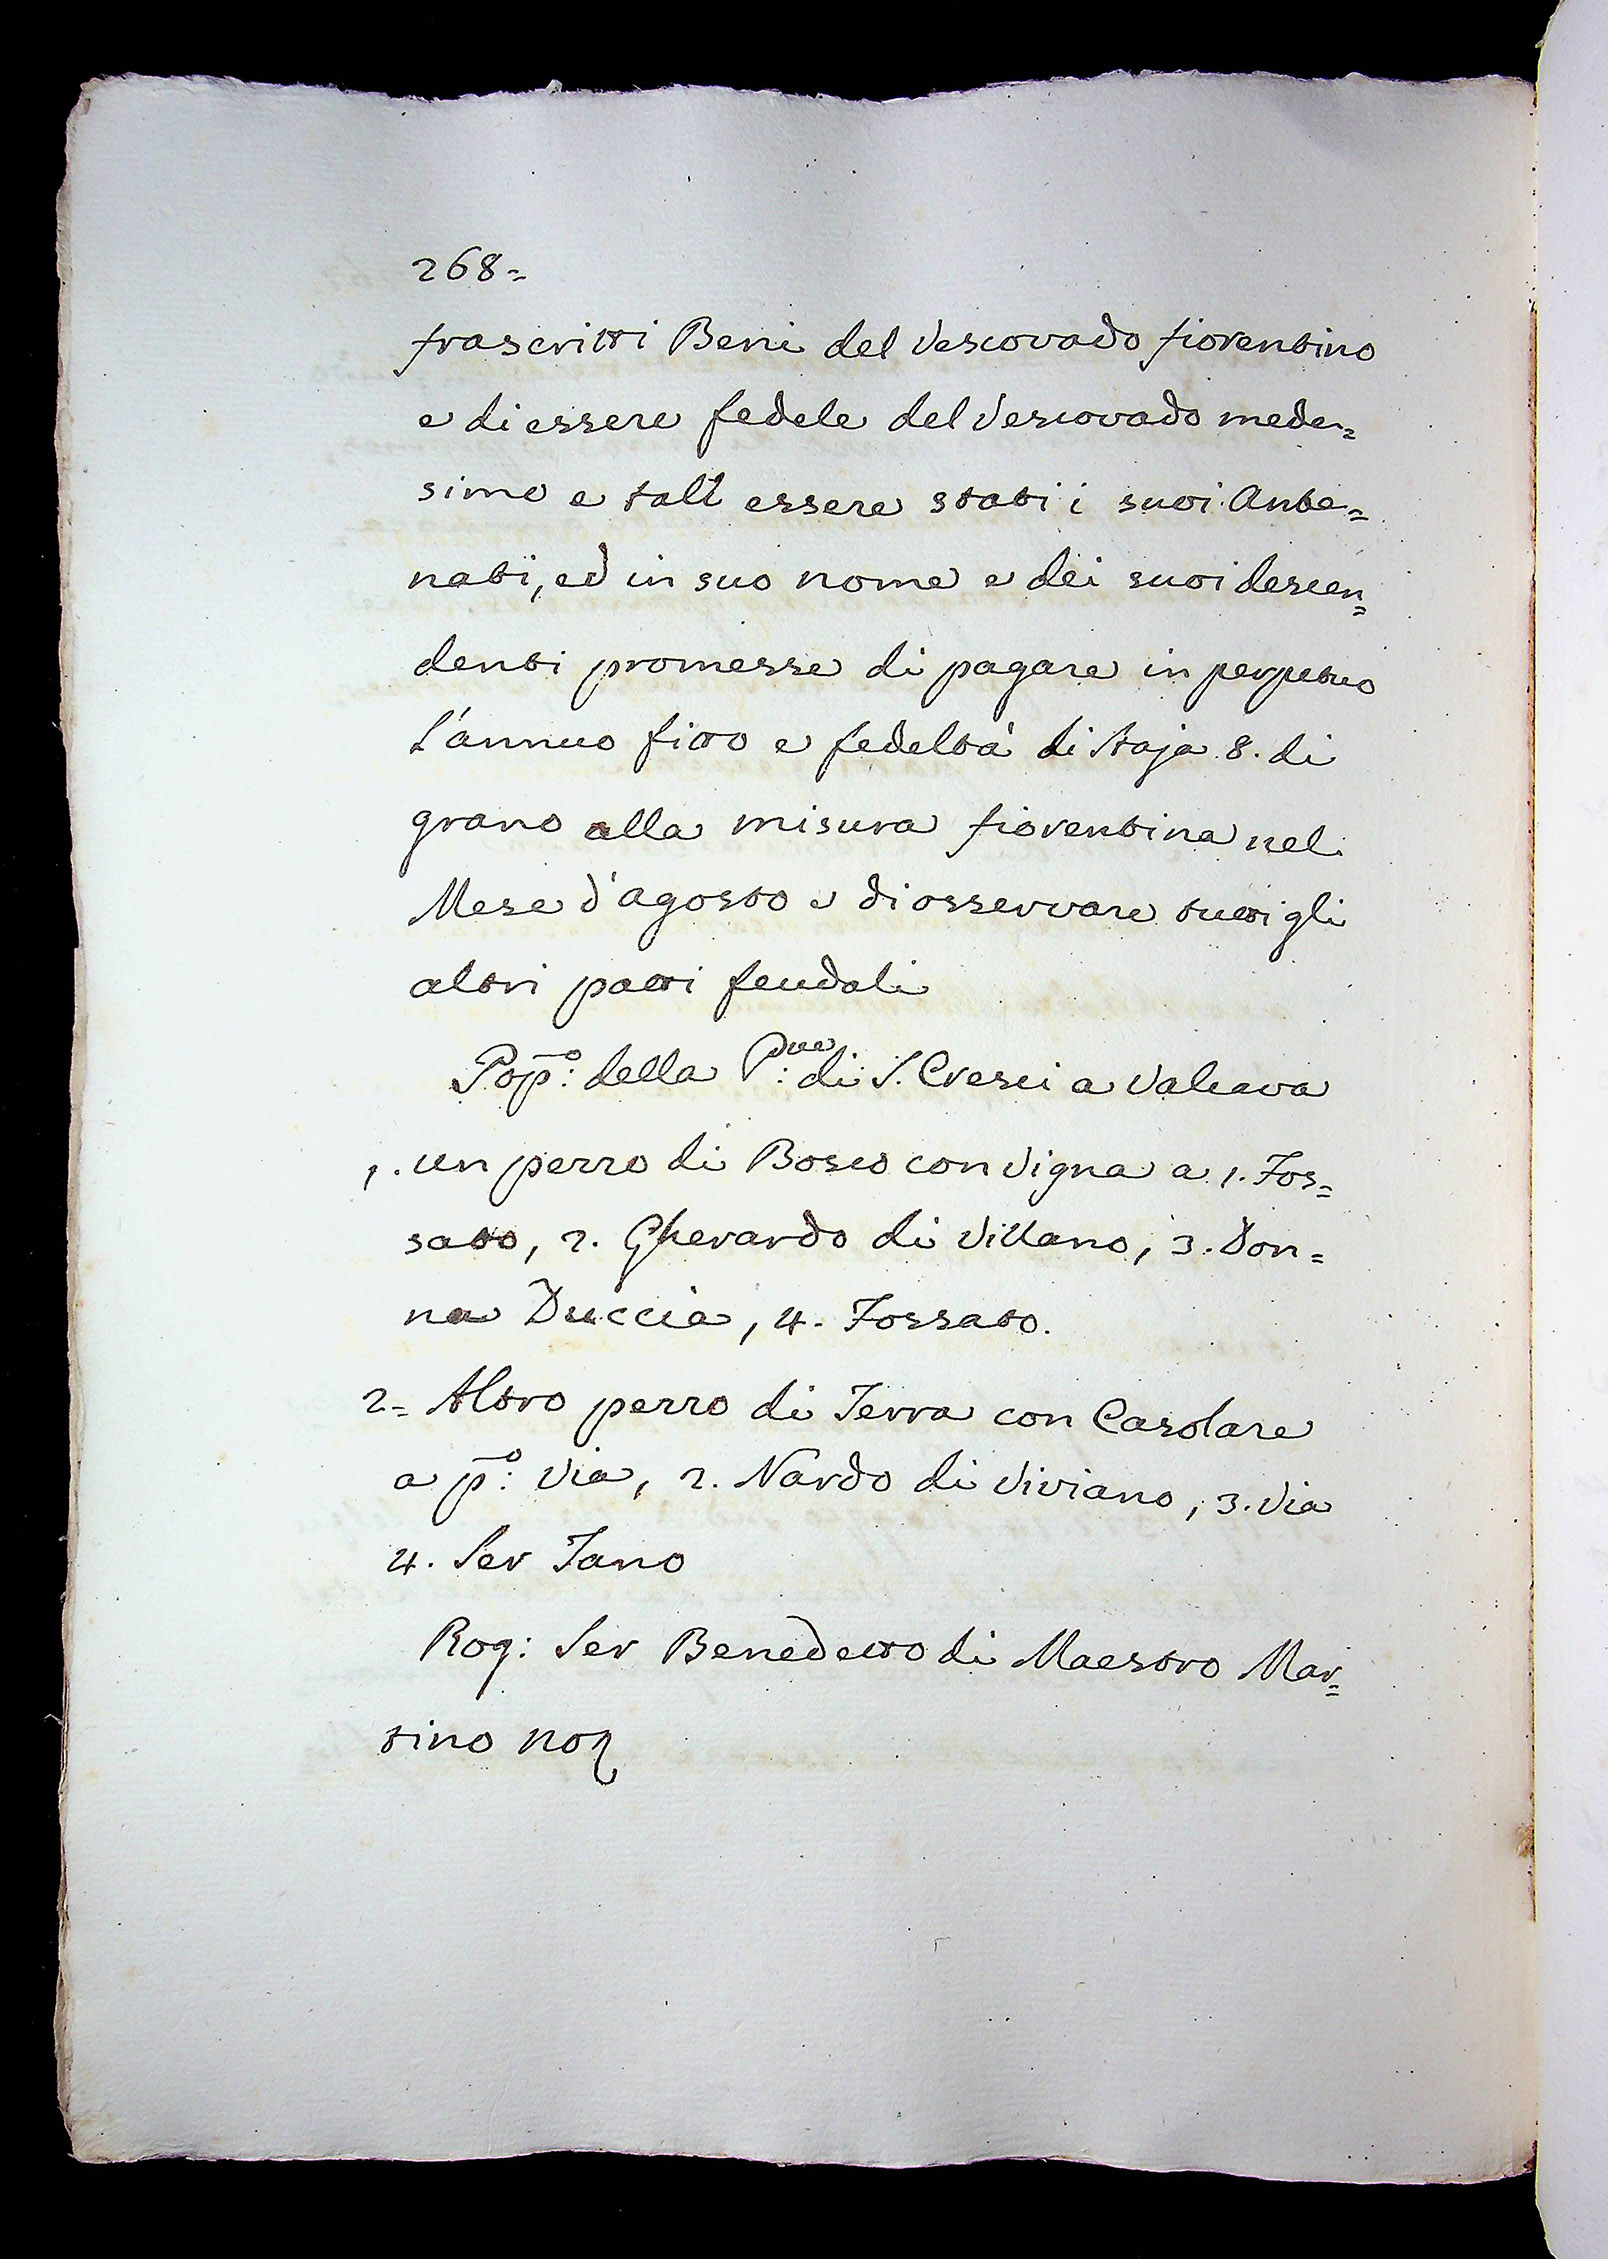 268=
frascritti Beni del Vescovado fiorentino
e di essere fedele del Vescovado mede=
simo e tali essere stati i suoi Ante=
nati, ed in suo nome e dei suoi descen=
denti promesse di pagare in perpetuo
l'annuo fitto e fedeltà di Staja 8. di
grano alla misura fiorentina nel
Mese d'agosto e di osservare tutti gli
altri patti feudali
Pop̅o: della Pve: di S. Cresci a Valcava
1. un pezzo di Bosco con Vigna a 1. Fos=
sato, 2. Gherardo di Villano, 3. Don=
na Duccia, 4. Fossato.
2= Altro pezzo di Terra con Casolare
a p̅o: Via, 2. Nardo di Viviano, 3. Via
4. Ser Tano
Rog: Ser Benedetto di Maestro Mar=
tino Not